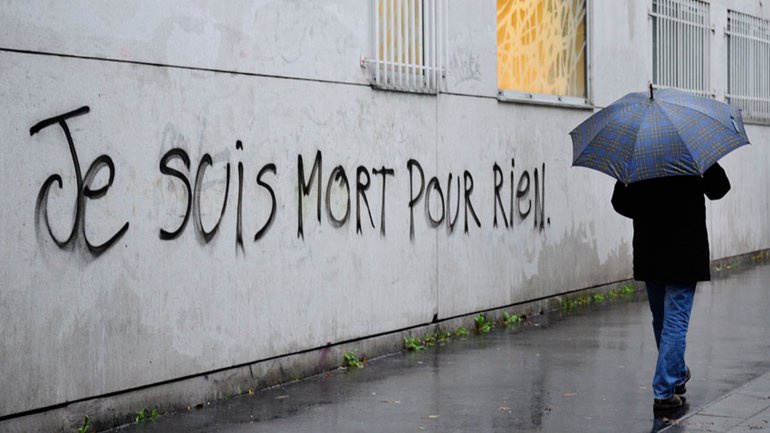 Je suis mort pour rien.